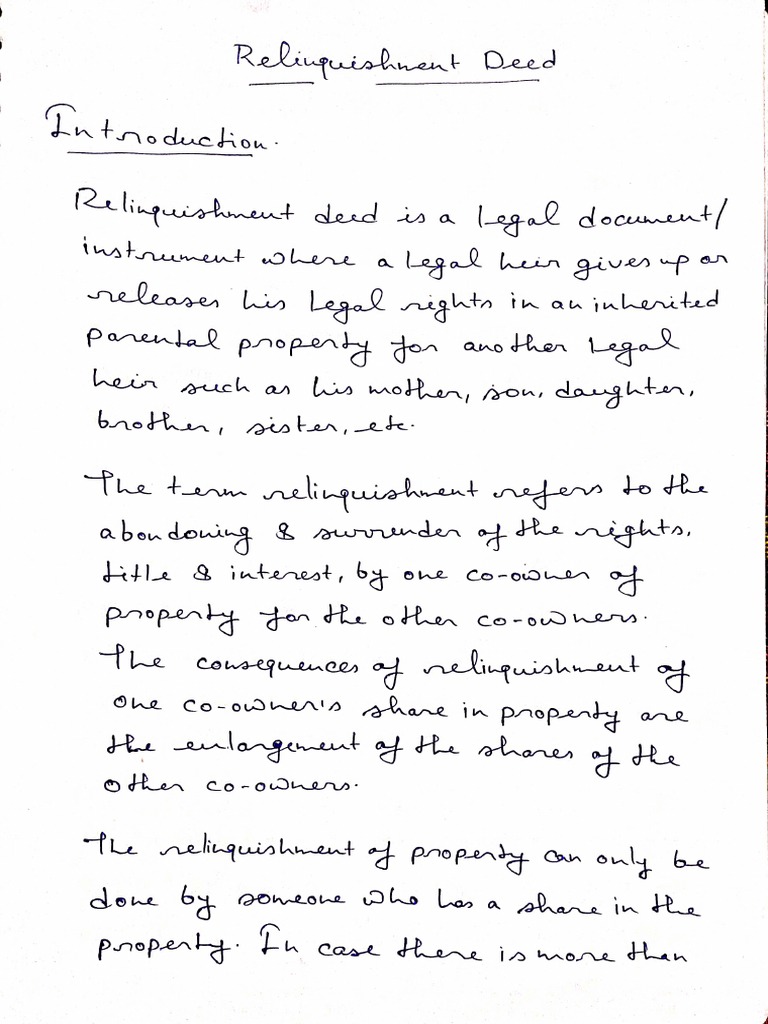 Relinquishment Deed
Introduction.
Relinquishment deed is a legal document/
instrument where a legal heir gives up or
releases his legal rights in an inherited
parental property for another legal
heir such as his mother, son, daughter,
brother, sister, etc.
The term relinquishment refers to the
abondoning & surrender of the rights,
title & interest, by one co-owner of
property for the other co-owners.
The consequences of relinquishment of
one co-owner's share in property are
the enlargement of the shares of the
other co-owners.
The relinquishment of property can only be
done by someone who has a share in the
property. In case there is more than